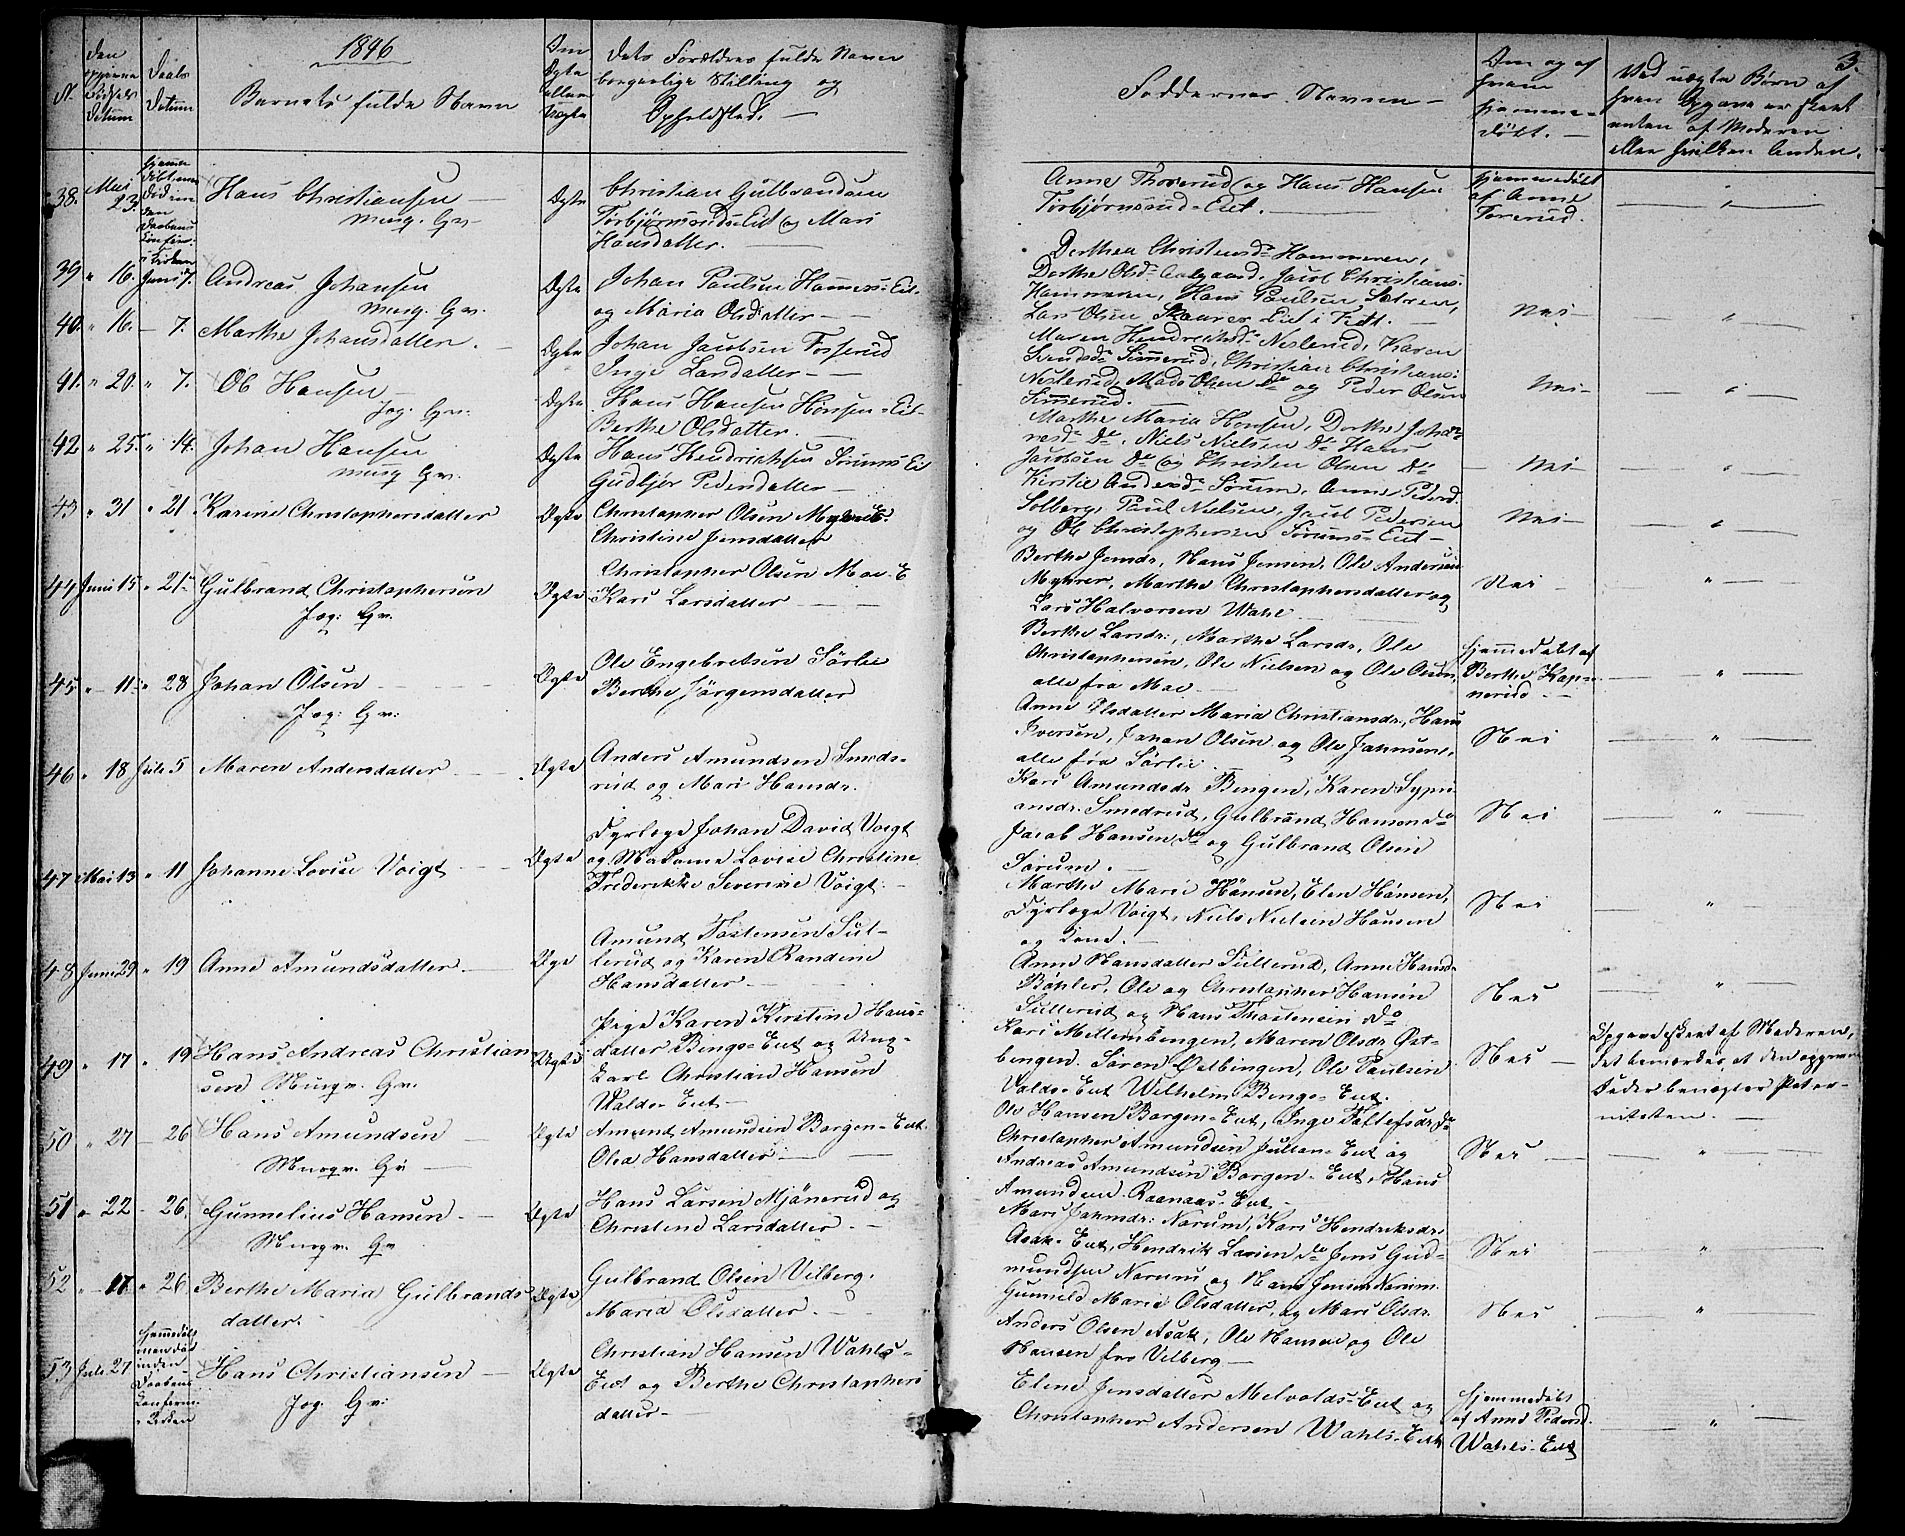 3.
1846
N.
Den
Fødsels
Datum
Daabs
Datum
Barnets fulde Navn
Om
Ægte
eller
Uægte
Dets Forældres fulde Navn
borgerlige Stilling og
Opholdsted. —
Faddernes Navne —
Om og af
hvem
hjemme-
døbt. —
Ved uægte Børn af
hvem Opgave er skeet
enten af Moderen
eller hvilken Anden.
38. Mai 23.
Hans Christiansen —
Ægte
Christian Gulbrandsen
Torbjørnsruds-Eit og Mari
Hansdatter. —
Anne Thorerud og Hans Hansen
Torbjørnsrud-Eit. —
hjemmedøbt
af Anne
Torerud.
39 " 16. Juni 7.
Andreas Johansen
Ægte
Johan Paulsen Hammers-Eit-
og Maria Olsdatter — —
Dorthea Christensd. Hammeren,
Dorthe Olsd. Aalgaard, Jacob Christians.
Hammeren, Hans Paulsen Sætren,
Lars Olsen Skaarer Eit i Fet. —
Nei —
40. " 16. — 7.
Marthe Johansdatter. —
Ægte
Johan Jacobsen Fosserud
Inge Larsdatter — —
Maren Hendriksd. Neslerud, Karen
Simmerud, Christian Christians:
Neslerud, Mads Olsen Do og Peder Olsen
Simmerud. —
Nei —
41. " 20. " 7.
Ole Hansen —
Jag. Gv.
Ægte
Hans Hansen Hønsen-Eit-
Berthe Olsdatter. —
Marthe Maria Hønsen, Dorthe Joha-
nesd. Do, Niels Nielsen Do Hans
Jacobsen Do og Christen Olsen Do
— Nei —
42 " 25. " 14.
Johan Hansen
Ægte
Hans Hendriksen Sørums Eit
Gudbjør Pedersdatter —
Kirstie Andersd. Sørum, Anne Pedersd.
Solberg, Paul Nielsen, Jacob Pedersen
og Ole Christophersen Sørums-Eit —
Nei —
43 " 31 " 21
Karine Christophersdatter
Ægte
Christopher Olsen Myhrer E.
Christine Jensdatter
Berthe Jensdr, Hans Jensen, Ole Andersen
Myhrer, Marthe Christophersdatter og
Lars Halvorsen Wahl —
Nei —
44 Juni 15 " 21
Gulbrand Christophersen
Jag: Gv.
Ægte
Christopher Olsen Moe-E
Kari Larsdatter — —
Berthe Larsdr., Marthe Larsdr, Ole
Christophersen, Ole Nielsen og Ole Olsen,
alle fra Moe —
hjemmedøbt af
Berthe Kap-
nerud. —
45 " 11 " 28
Johan Olsen —
Jag: Gv:
Ægte
Ole Engebretsen Sørlie
Berthe Jørgensdatter
Anne Olsdatter Maria Christiansdr., Hans
Iversen, Johan Olsen og Ole Jahnsen,
alle fra Sørlie —
Nei
46 " 18 Juli 5
Maren Andersdatter —
Ægte
Anders Amundsen Smeds-
rud og Mari Hansdr.
Kari Amundsdr Bingen, Karen Sypri-
ansdr. Smedrud, Gulbrand Hansen do
Jacob Hansen do og Gulbrand Olsen
Sørum. —
Nei
47 Mai 13 " 11
Johanne Lovise Voigt —
Ægte
Dyrlæge Johan David Voigt
og Madame Lovise Christine
Frederikke Severine Voigt. —
Marthe Marie Hønsen, Elen Hønsen,
Dyrlæge Voigt, Niels Nielsen Hønsen
og Kone. —
Nei
48 Juni 29 " 19
Anne Amundsdatter. —
Amund Tostensen Sul-
lerud og Karen Randine
Hansdatter —
Anne Hansdatter Sullerud, Anne Hansd.
Bøhler, Ole og Christopher Hansen
Sullerud og Hans Thostensen do
Nei
49 " 17 " 19
Hans Andreas Christian-
sen
Uægte
Pige Karen Kirstine Hans-
datter Bings-Eit og Ung-
karl Christian Hansen
Walds-Eit —
Kari Mellembingen, Maren Olsdr Øst-
bingen, Søren Østbingen, Ole Paulsen
Valds-Eit Wilhelm Bings-Eit.
Nei —
Opgave skeet af Moderen,
det bemærkes, at den opgivne
Fader benægter Pater-
niteten. —
50 " 27 — 26
Hans Amundsen —
Ægte
Amund Amundsen Borgen-Eit.
Olea Hansdatter. —
Ole Hansen Borgen-Eit, Inge do
Christopher Amundsen Julian-Eit og
Andreas Amundsen Borgen-Eit, Hans
Amundsen Raanaas-Eit —
Nei —
51 " 22 — 26.
Gunnelius Hansen. —
Ægte
Hans Larsen Mjønerud og
Christine Larsdatter. —
Mari Jahnsdr: Narum, Kari Hendriksdr:
Asak-Eit, Hendrik Larsen do Jens Gud-
mundsen Narum og Hans Jensen Narum
Nei
52 " 17 " 26
Berthe Maria Gulbrands-
datter.
Ægte
Gulbrand Olsen Vilberg.
Maria Olsdatter. —
Gunnild Marie Olsdatter, og Mari Olsdr.
Anders Olsen Asak, Ole Hansen og Ole
Hansen fra Vilberg —
Nei
53 Juli 27
Hans Christiansen —
Jag. Gv:
Ægte
Christian Hansen Wahls-
Eit og Berthe Christophers-
datter —
Elene Jensdatter Melvolds-Eit og
Christopher Andersen Wahls-Eit
hjemmedøbt
af Anne Pedersd.
Wahls-Eit